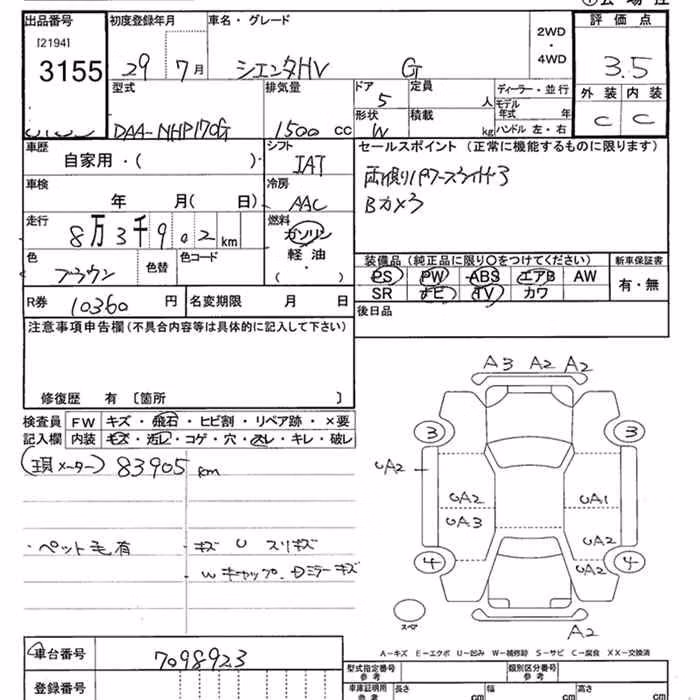 出品番号 初度登録年月 車名・グレード 2WD・4WD 評価点
[2194]
3155 29 7月 シエンタHV G 3.5
型式 排気量 ドア 定員 ディーラー・並行 外装 内装
5 人 モデル年式 年
DAA-NHP170G 1500 cc 形状 W 積載 kg ハンドル 左・右 C C
車歴 シフト セールスポイント (正常に機能するものに限ります)
自家用・( ) IAT
車検 冷房 Bカメラ
年 月( 日) AAC
走行 燃料
8万3千902km ガソリン
色 色替 色コード 軽油 装備品(純正品に限り○をつけてください) 新車保証書
ブラウン ( ・ ) PS PW ABS エアB AW 有・無
SR ナビ TV カワ
R券 10360 円 名変期限 月 日 後日品
注意事項申告欄(不具合内容等は具体的に記入して下さい)
修復歴 有 〔箇所 〕
検査員 FW キズ・飛石・ヒビ割・リペア跡・×要
記入欄 内装 キズ・汚レ・コゲ・穴・スレ・キレ・破レ
(現メーター) 83905 km
・ペット毛有 ・キズ U スリキズ
Wキャップ.Dミラーキズ
A3 A2 A2
3 3
UA2
UA2 UA1
UA3 UA2
4 UA2 4
スペア
A2
A-キズ E-エクボ U-凹み W-補修跡 S-サビ C-腐食 XX-交換済
車台番号 7098923
登録番号
型式指定番号 参考 類別区分番号 参考
車庫証明用 参考 長さ cm 幅 cm 高さ cm